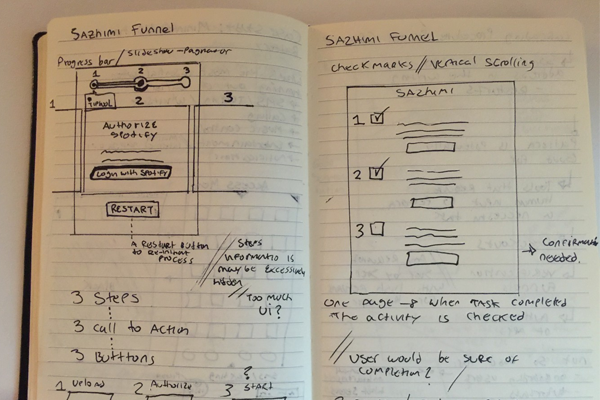 SAZHIMI FUNNEL
Progress bar / Slideshow - Paginator
1 2 3
1 2 3
AUTHORIZE
SPOTIFY
Login with Spotify
RESTART
A RESTART BUTTON
TO RE-INIT
PROCESS
// Steps
INFORMATION IS
MAY BE EXCESSIVELY
HIDDEN
// TOO MUCH
UI?
3 STEPS
3 CALL TO ACTION
3 BUTTONS
1 UPLOAD 2 AUTHORIZE 3 START
?
SAZHIMI FUNNEL
CHECKMARKS // VERTICAL SCROLLING
SAZHIMI
1
2
3
→ CONFIRMATION
NEEDED.
ONE PAGE → WHEN TASK COMPLETED
THE ACTIVITY IS CHECKED
// USER WOULD BE SURE OF
COMPLETION?